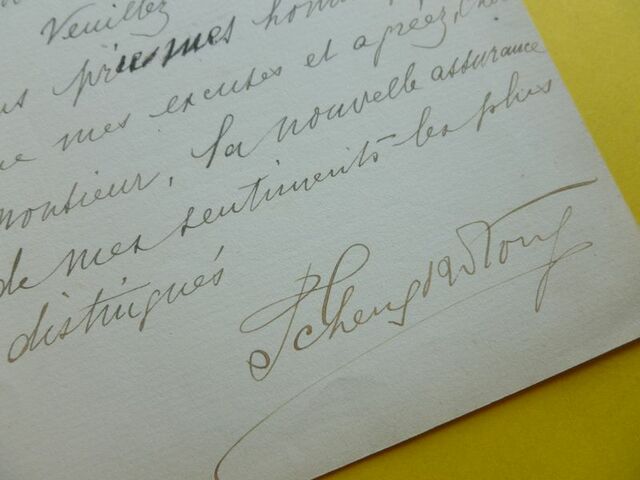 Veuillez
mes
mes excuses et agréez, cher
monsieur, la nouvelle assurance
de mes sentiments les plus
distingués
Tcheng Ki Tong